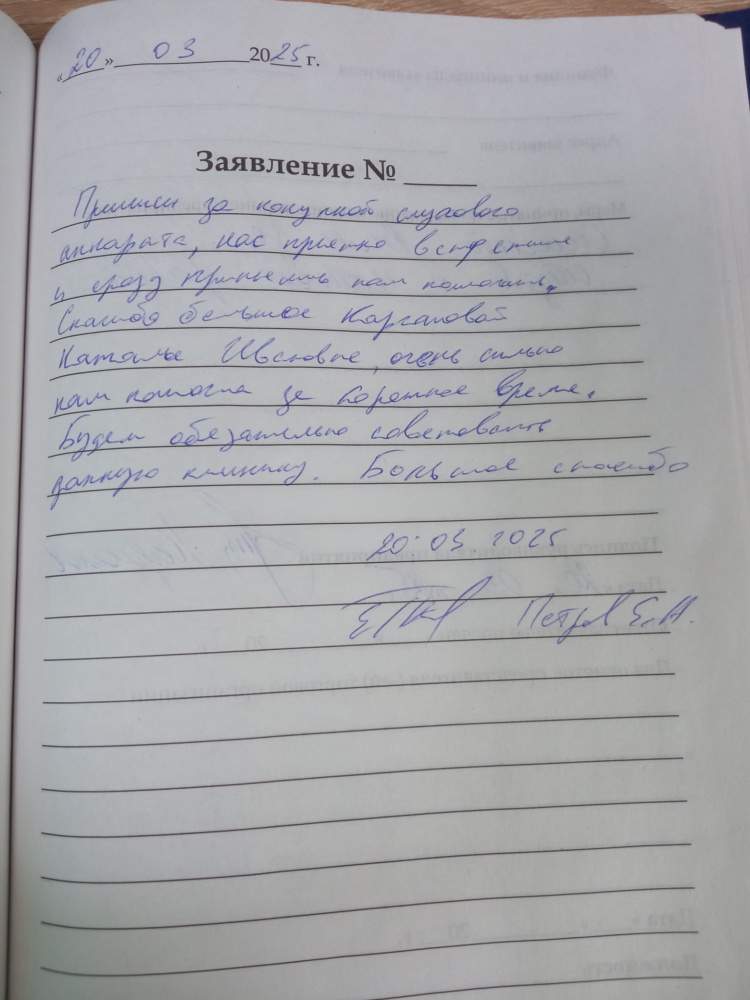 «20» 03 2025 г.
Заявление № ____
Пришли за покупкой слухового
аппарата, нас приятно встретили
и сразу принялись нам помогать.
Спасибо большое Каргаповой
Наталье Ивановне, очень сильно
нам помогла за короткое время.
Будем обязательно советовать
данную клинику. Большое спасибо
20.03 2025
Петров Е.А.